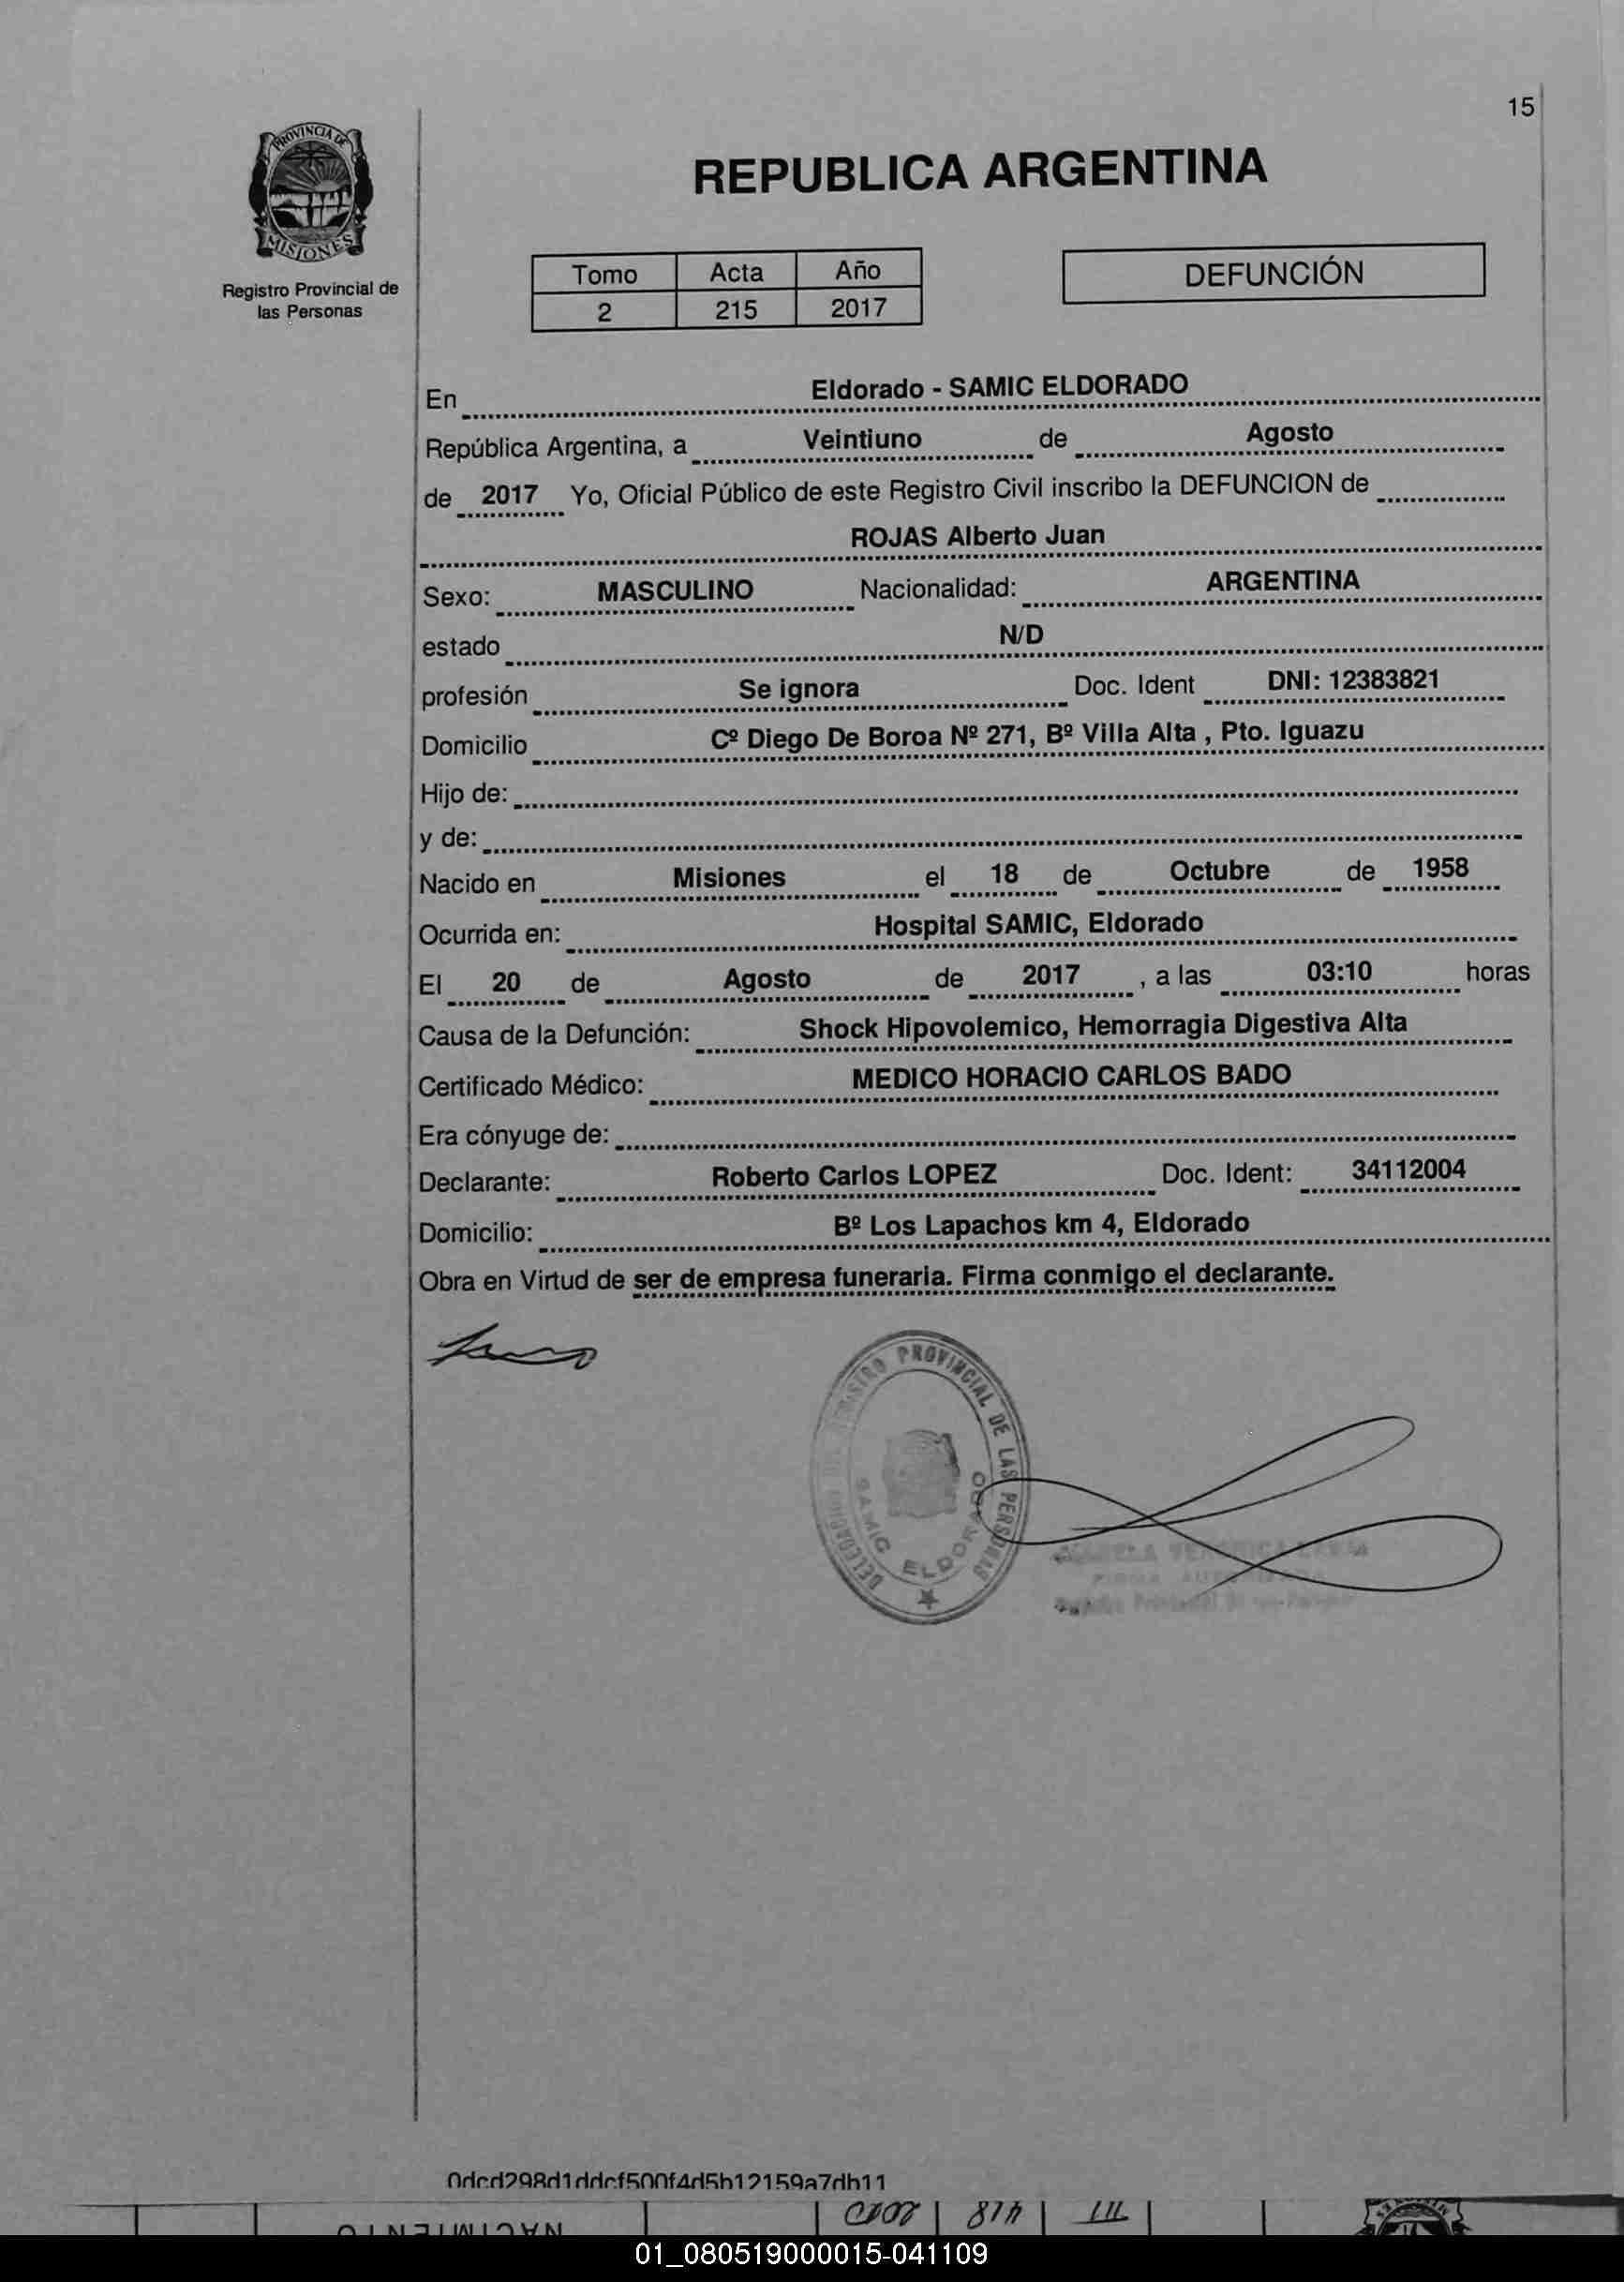 15
PROVINCIA DE
MISIONES
Registro Provincial de
las Personas
REPUBLICA ARGENTINA
Tomo Acta Año
2 215 2017
DEFUNCIÓN
En Eldorado - SAMIC ELDORADO
República Argentina, a Veintiuno de Agosto
de 2017 Yo, Oficial Público de este Registro Civil inscribo la DEFUNCION de
ROJAS Alberto Juan
Sexo: MASCULINO Nacionalidad: ARGENTINA
estado N/D
profesión Se ignora Doc. Ident DNI: 12383821
Domicilio Cº Diego De Boroa Nº 271, Bº Villa Alta , Pto. Iguazu
Hijo de:
y de:
Nacido en Misiones el 18 de Octubre de 1958
Ocurrida en: Hospital SAMIC, Eldorado
El 20 de Agosto de 2017 , a las 03:10 horas
Causa de la Defunción: Shock Hipovolemico, Hemorragia Digestiva Alta
Certificado Médico: MEDICO HORACIO CARLOS BADO
Era cónyuge de:
Declarante: Roberto Carlos LOPEZ Doc. Ident: 34112004
Domicilio: Bº Los Lapachos km 4, Eldorado
Obra en Virtud de ser de empresa funeraria. Firma conmigo el declarante.
PROVINCIAL DE LAS PERSONAS
SAMIC ELDORADO
0dcd298d1ddcf500f4d5b12159a7db11
NACIMIENTO
01_080519000015-041109